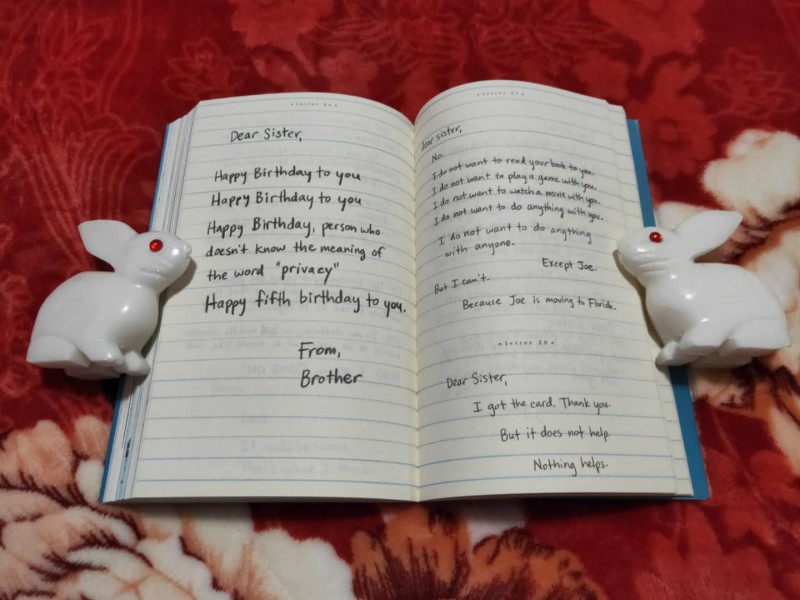 • letter
Dear Sister,
Happy Birthday to you
Happy Birthday to you
Happy Birthday, person who
doesn't know the meaning of
the word "privacy"
Happy fifth birthday to you.
From,
Brother
• letter 27 •
Dear Sister,
No.
I do not want to read your book to you.
I do not want to play a game with you.
I do not want to watch a movie with you.
I do not want to do anything with you.
I do not want to do anything
with anyone.
Except Joe.
But I can't.
Because Joe is moving to Florida.
• letter 28 •
Dear Sister,
I got the card. Thank you.
But it does not help.
Nothing helps.